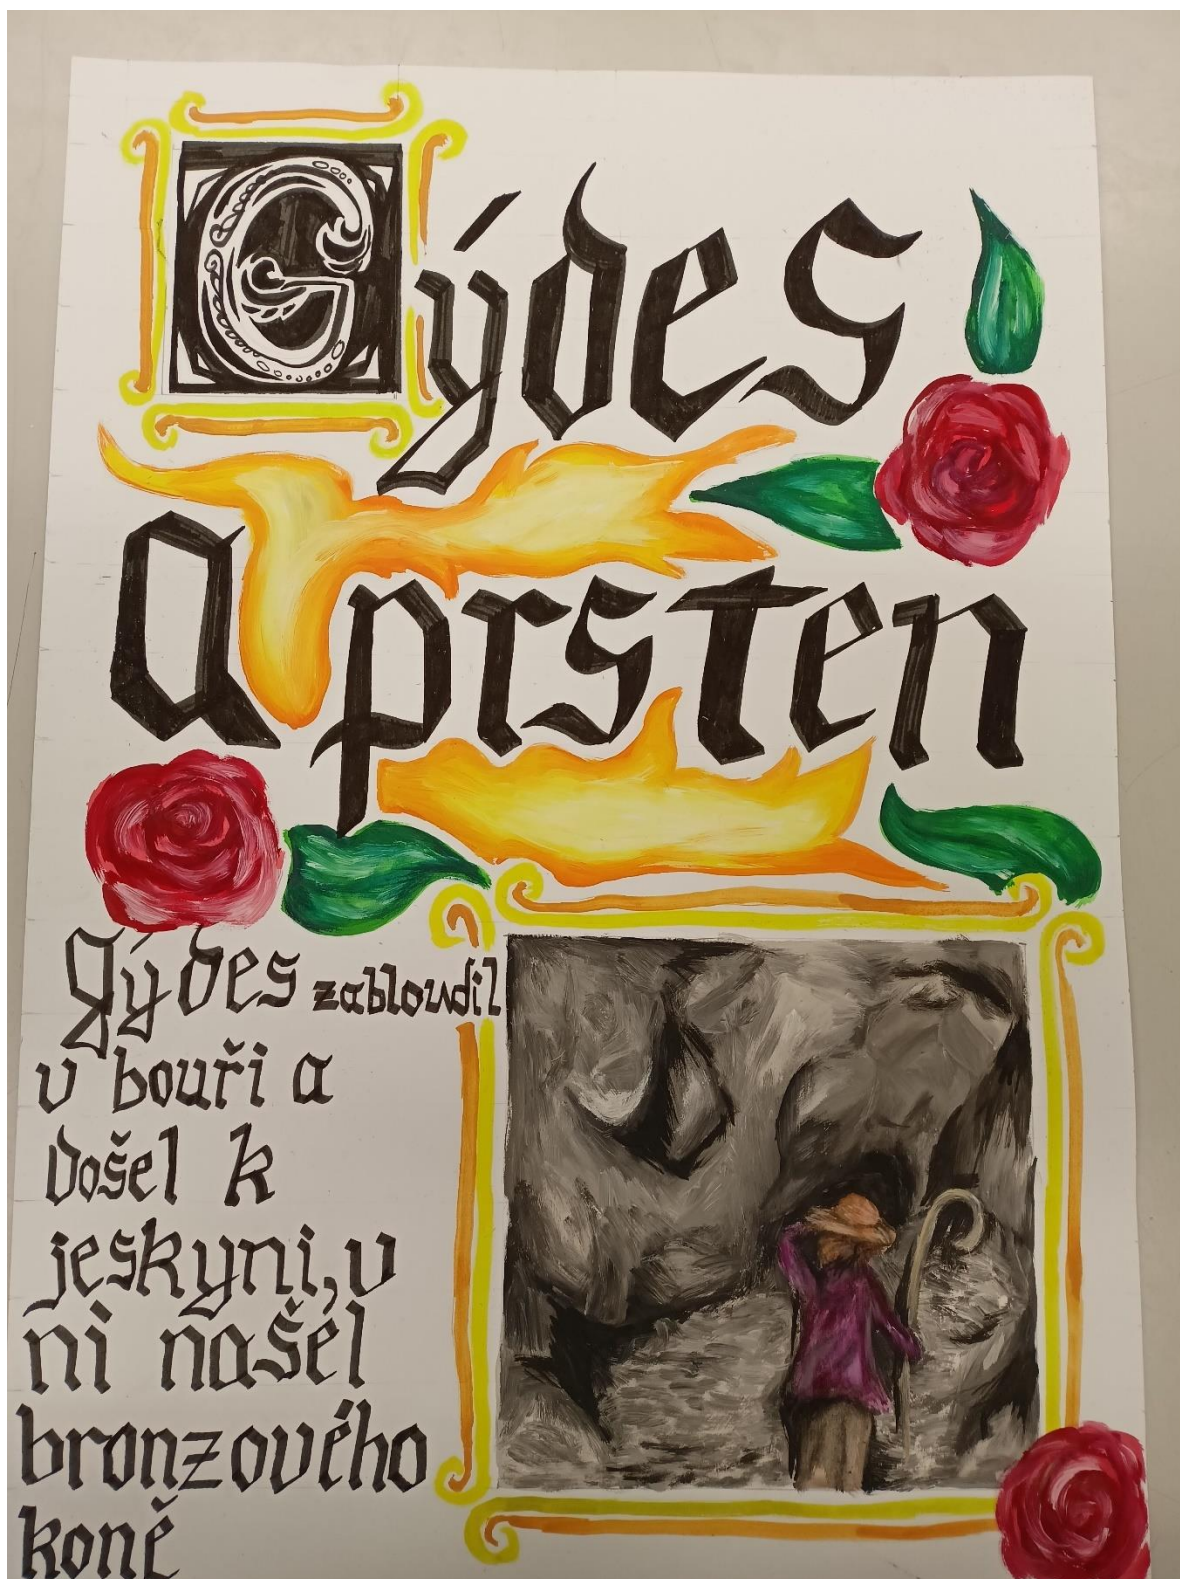 Gýdes
a prsten
gýdes zabloudil
v bouři a
došel k
jeskyni, v
ni našel
bronzového
koně